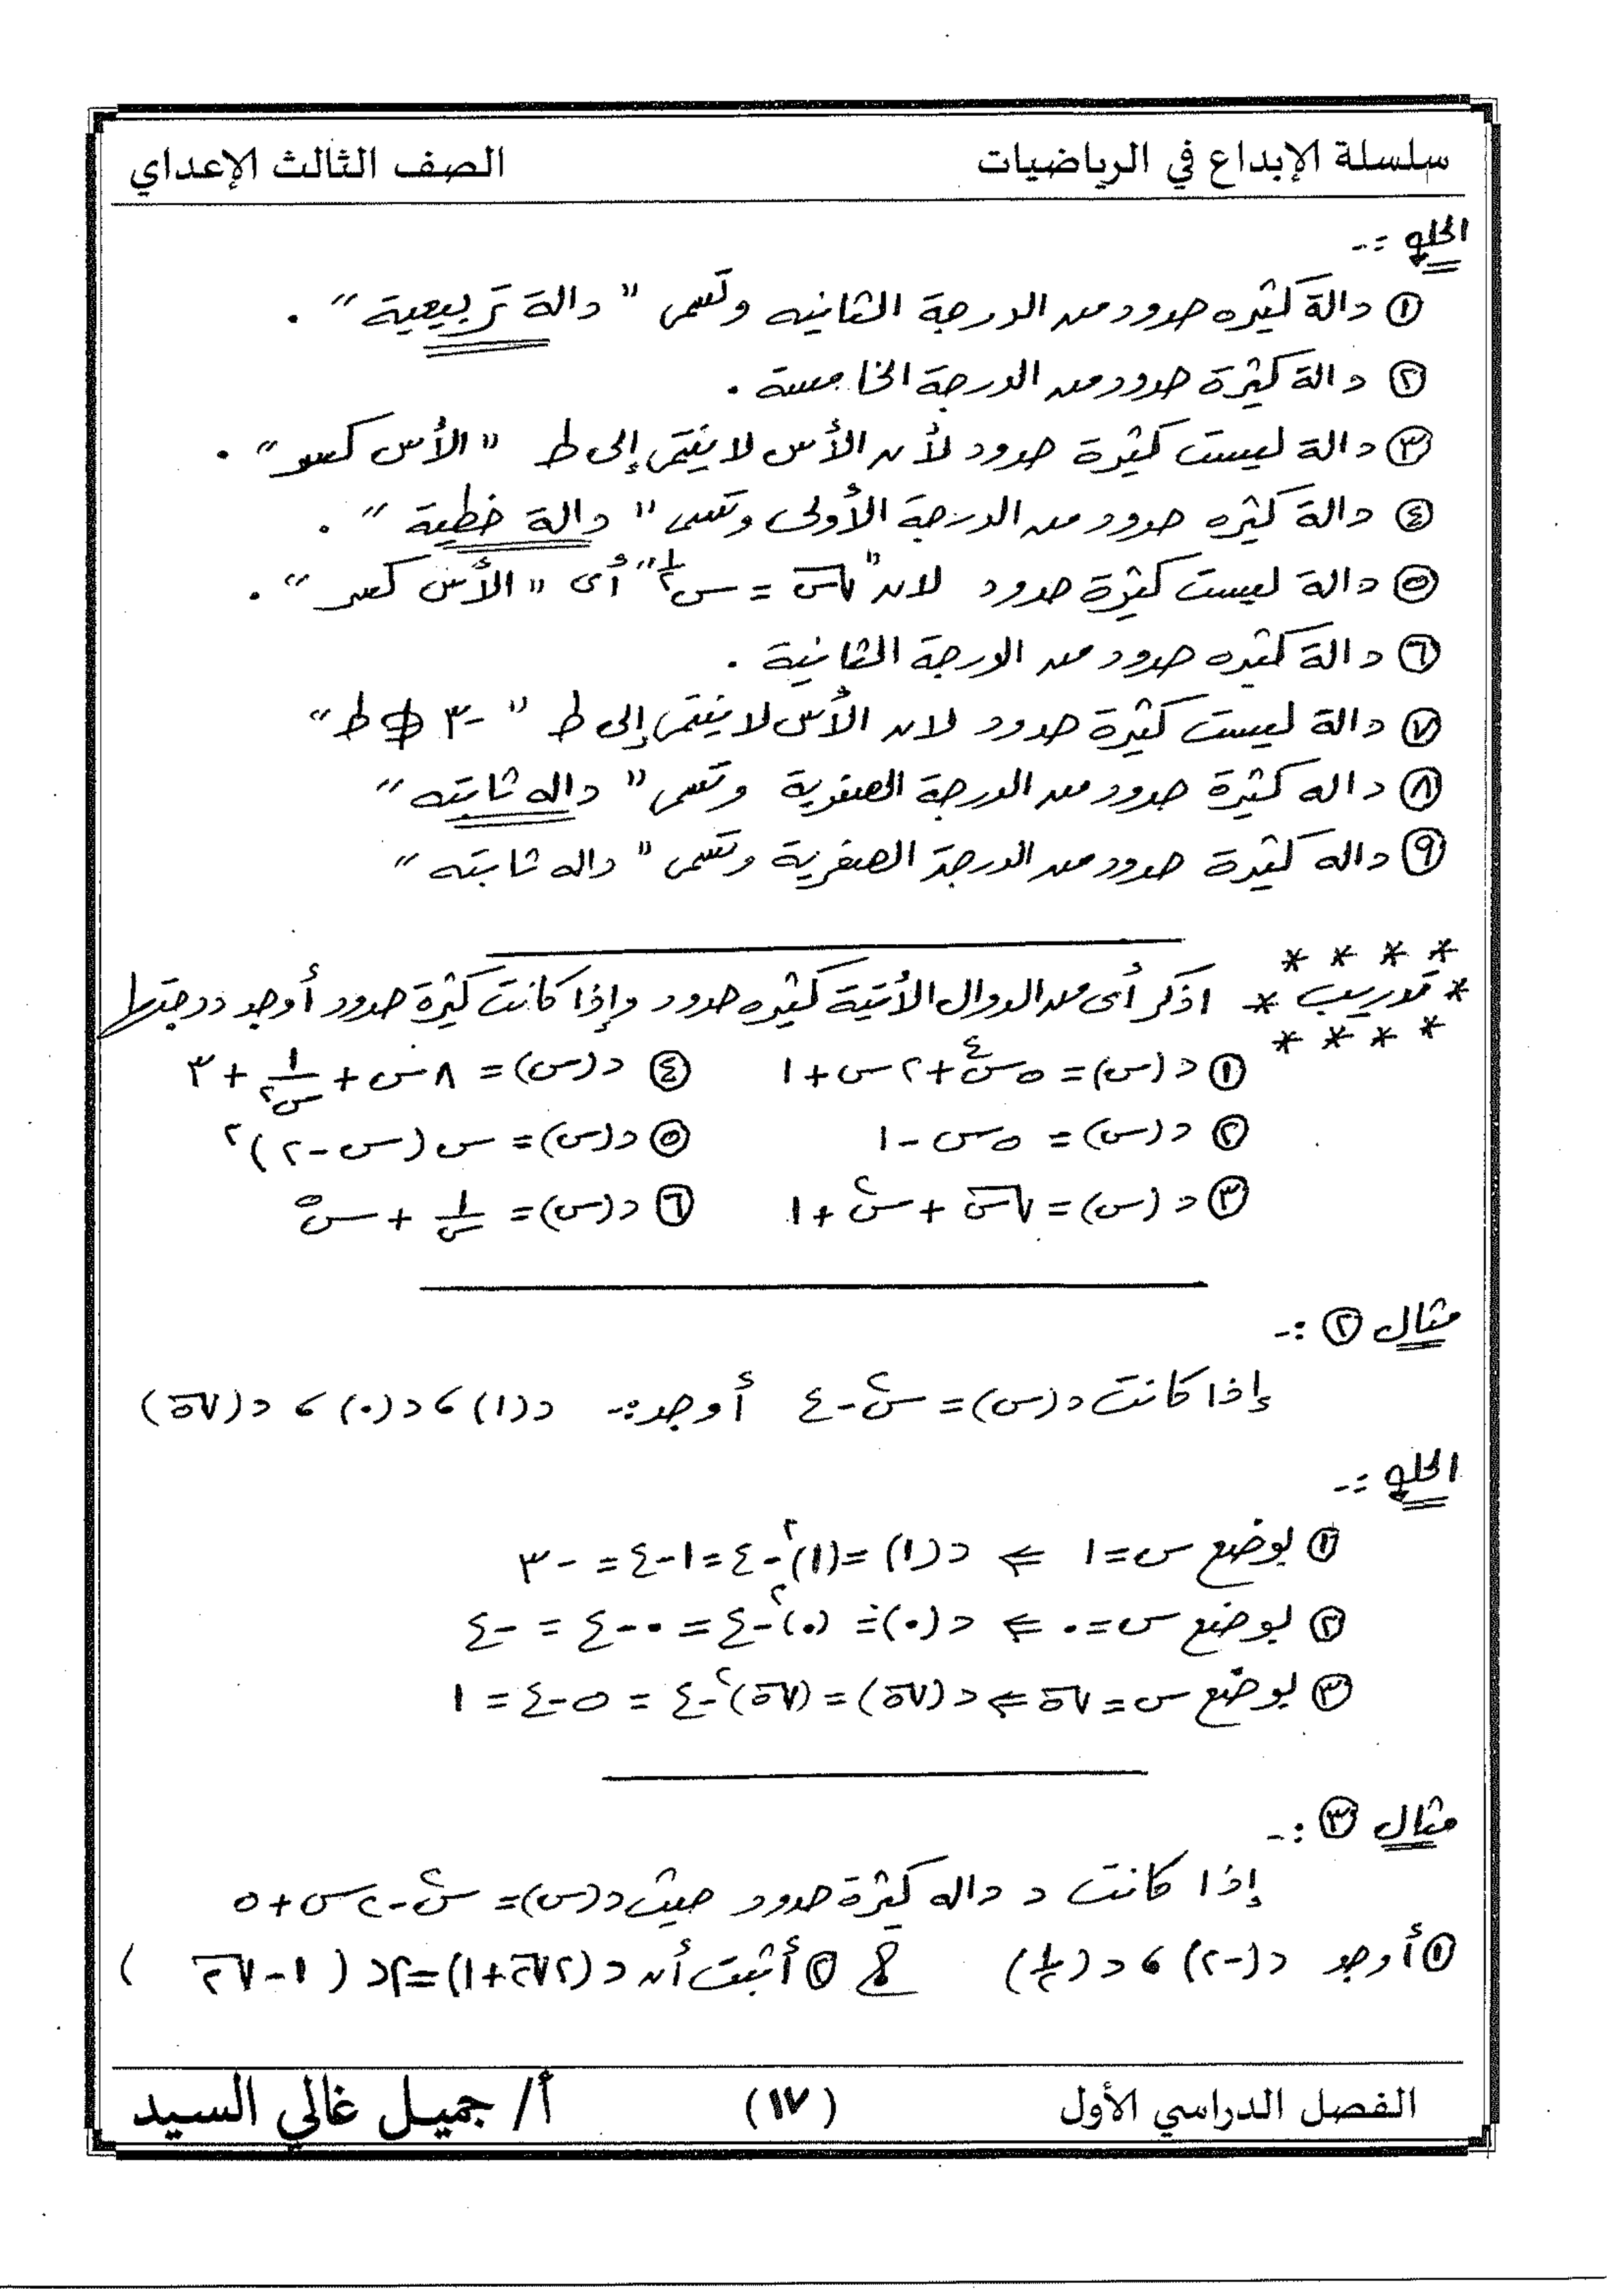 سلسلة الإبداع في الرياضيات
الصف الثالث الإعداي
الحل :-
① دالة كثيره حدود من الدرجة الثانيه وتسمى " دالة تربيعية " .
② دالة كثيرة حدود من الدرجة الخامسة .
③ دالة ليست كثيرة حدود لأن الأس لا ينتمى إلى ط " الأس كسر " .
④ دالة كثيره حدود من الدرجة الأولى وتسمى " دالة خطية " .
⑤ دالة ليست كثيرة حدود لان " √س = س^(١/٢) " أى " الأس كسر " .
⑥ دالة كثيره حدود من الدرجة الثانية .
⑦ دالة ليست كثيرة حدود لان الأس لا ينتمى إلى ط " -٣ ∉ ط "
⑧ داله كثيرة حدود من الدرجة الصفرية وتسمى " داله ثابته "
⑨ داله كثيرة حدود من الدرجة الصفرية وتسمى " داله ثابته "
* * * *
* تدريب * اذكر أى من الدوال الأتية كثيره حدود وإذا كانت كثيرة حدود أوجد درجتها
* * * *
① د (س) = ٥س^٤ + ٢س + ١ ④ د(س) = ٨س + ١/س^٢ + ٣
② د (س) = ٥س - ١ ⑤ د(س) = س (س - ٢)^٢
③ د (س) = √س + س^٢ + ١ ⑥ د(س) = ١/س + س^٥
مثال ② :-
إذا كانت د(س) = س^٢ - ٤ أوجد :- د(١) ، د(٠) ، د(√٥)
الحل :-
① بوضع س = ١ ⇐ د(١) = (١)^٢ - ٤ = ١ - ٤ = -٣
② بوضع س = ٠ ⇐ د(٠) = (٠)^٢ - ٤ = ٠ - ٤ = -٤
③ بوضع س = √٥ ⇐ د(√٥) = (√٥)^٢ - ٤ = ٥ - ٤ = ١
مثال ③ :-
إذا كانت د داله كثيرة حدود حيث د(س) = س^٢ - ٢س + ٥
① أوجد د(-٢) ، د(١/٢) ② أثبت أن د(٢√٢ + ١) = ٢د(١ - √٢)
الفصل الدراسي الأول
(١٧)
أ/ جميل غالي السيد